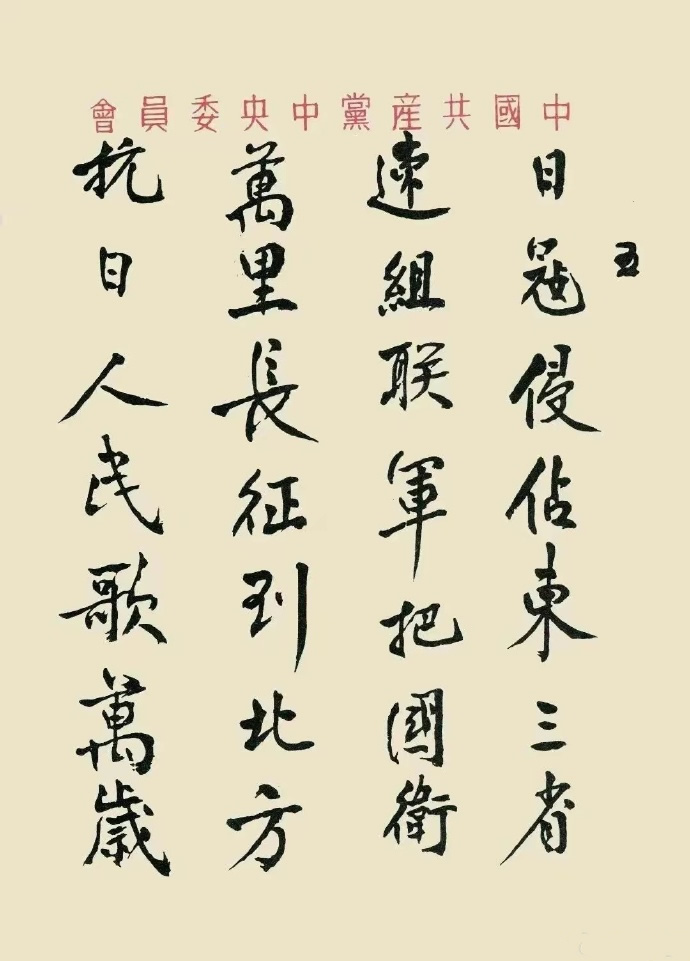 中國共産黨中央委員會
五
日寇侵佔東三省
速組联軍把國衛
萬里長征到北方
抗日人民歌萬歲